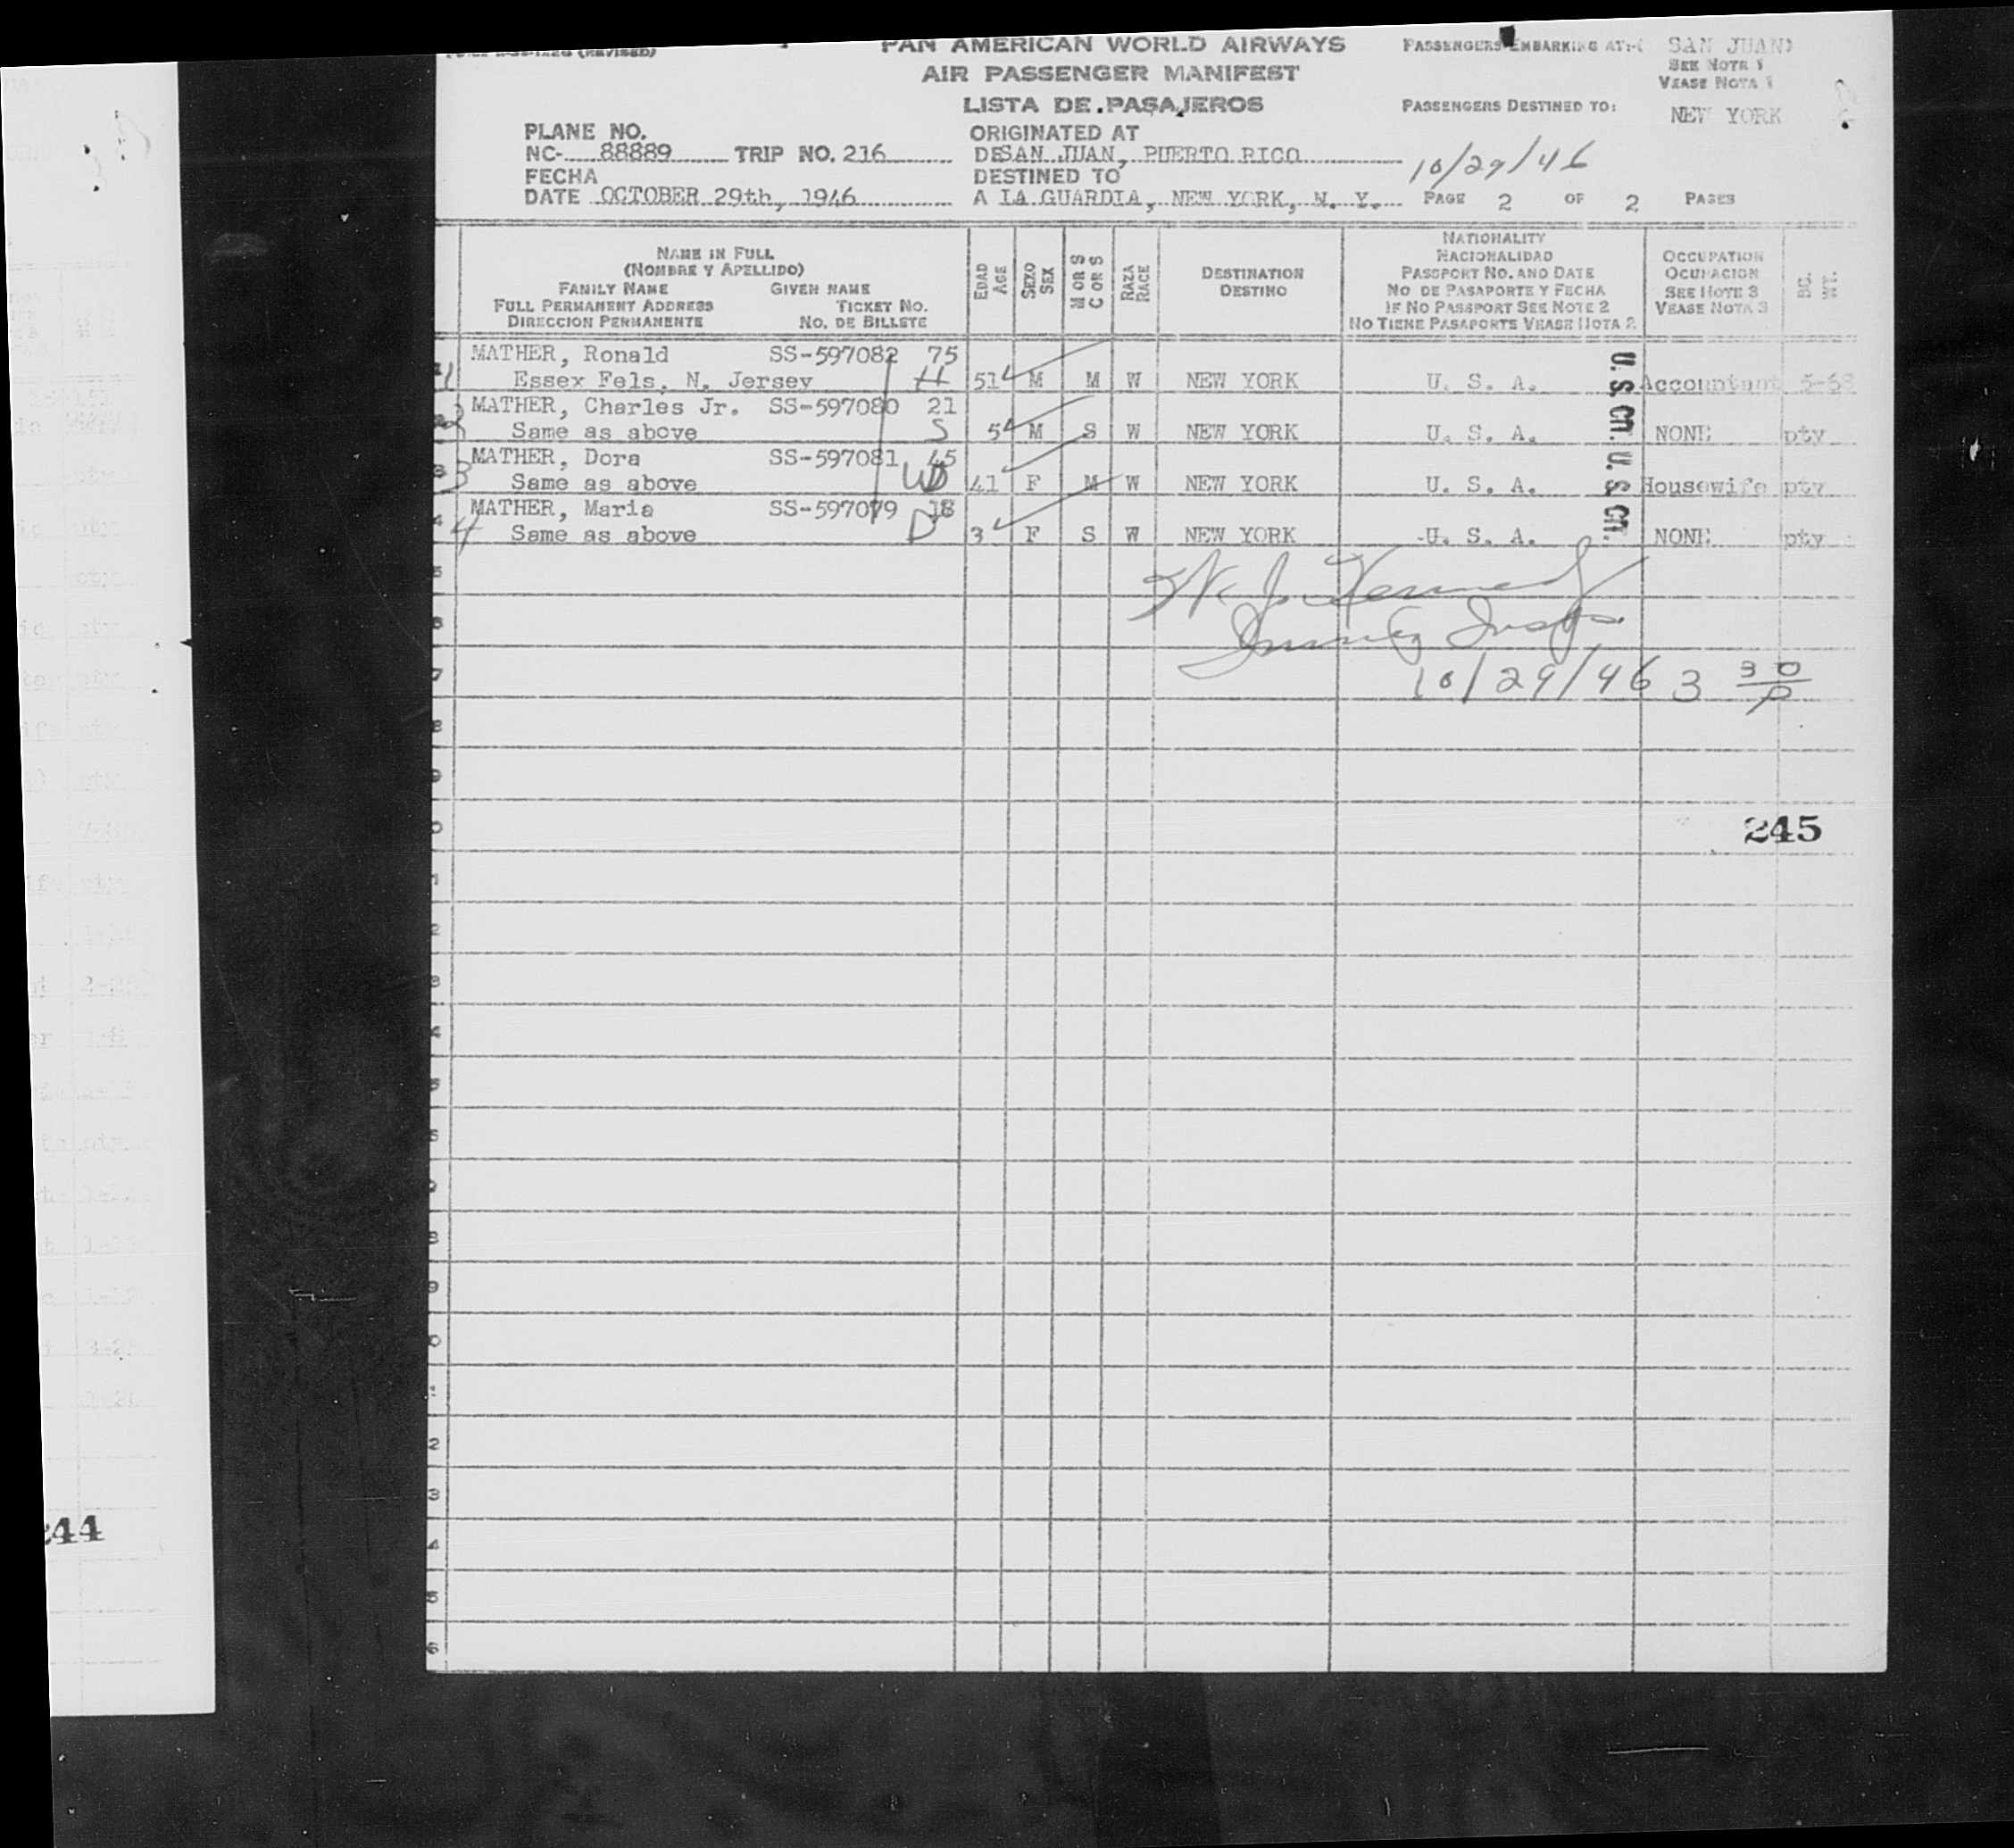 PAN AMERICAN WORLD AIRWAYS
AIR PASSENGER MANIFEST
LISTA DE PASAJEROS
PASSENGERS EMBARKING AT: SAN JUAN
SEE NOTE 1
VEASE NOTA 1
PASSENGERS DESTINED TO: NEW YORK
PLANE NO.
NC- 88889 TRIP NO. 216
FECHA
DATE OCTOBER 29th, 1946
ORIGINATED AT
DE SAN JUAN, PUERTO RICO
DESTINED TO
A LA GUARDIA, NEW YORK, N. Y.
10/29/46
PAGE 2 OF 2 PAGES
NAME IN FULL
(NOMBRE Y APELLIDO)
FAMILY NAME GIVEN NAME
FULL PERMANENT ADDRESS TICKET NO.
DIRECCION PERMANENTE NO. DE BILLETE
EDAD
AGE
SEXO
SEX
M OR S
C OR S
RAZA
RACE
DESTINATION
DESTINO
NATIONALITY
NACIONALIDAD
PASSPORT NO. AND DATE
NO DE PASAPORTE Y FECHA
IF NO PASSPORT SEE NOTE 2
NO TIENE PASAPORTE VEASE NOTA 2
OCCUPATION
OCUPACION
SEE NOTE 3
VEASE NOTA 3
BG.
WT.
MATHER, Ronald SS-597082 75
1 Essex Fels, N. Jersey H 51 M M W NEW YORK U. S. A. Accountant 5-68
MATHER, Charles Jr. SS-597080 21
2 Same as above S 5 M S W NEW YORK U. S. A. NONE pty
MATHER, Dora SS-597081 45
3 Same as above WD 41 F M W NEW YORK U. S. A. Housewife pty
MATHER, Maria SS-597079 18
4 Same as above D 3 F S W NEW YORK U. S. A. NONE pty
U.S. CIT. U.S. CIT.
W. J. Kennedy
Immig Insp.
10/29/46 3 30 P
245
244